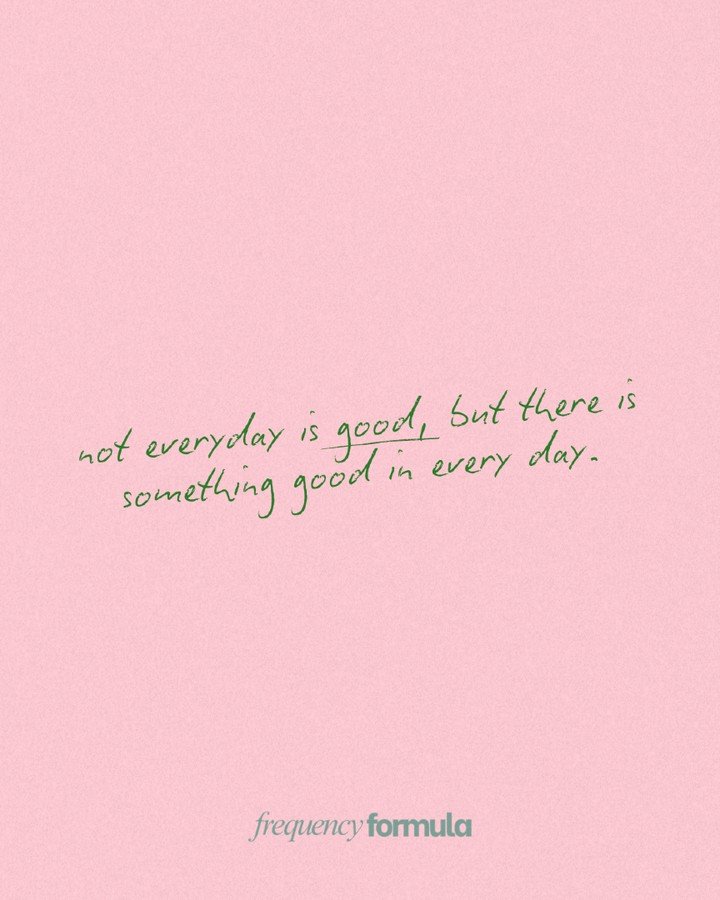 not everyday is good, but there is
something good in every day.
frequency formula